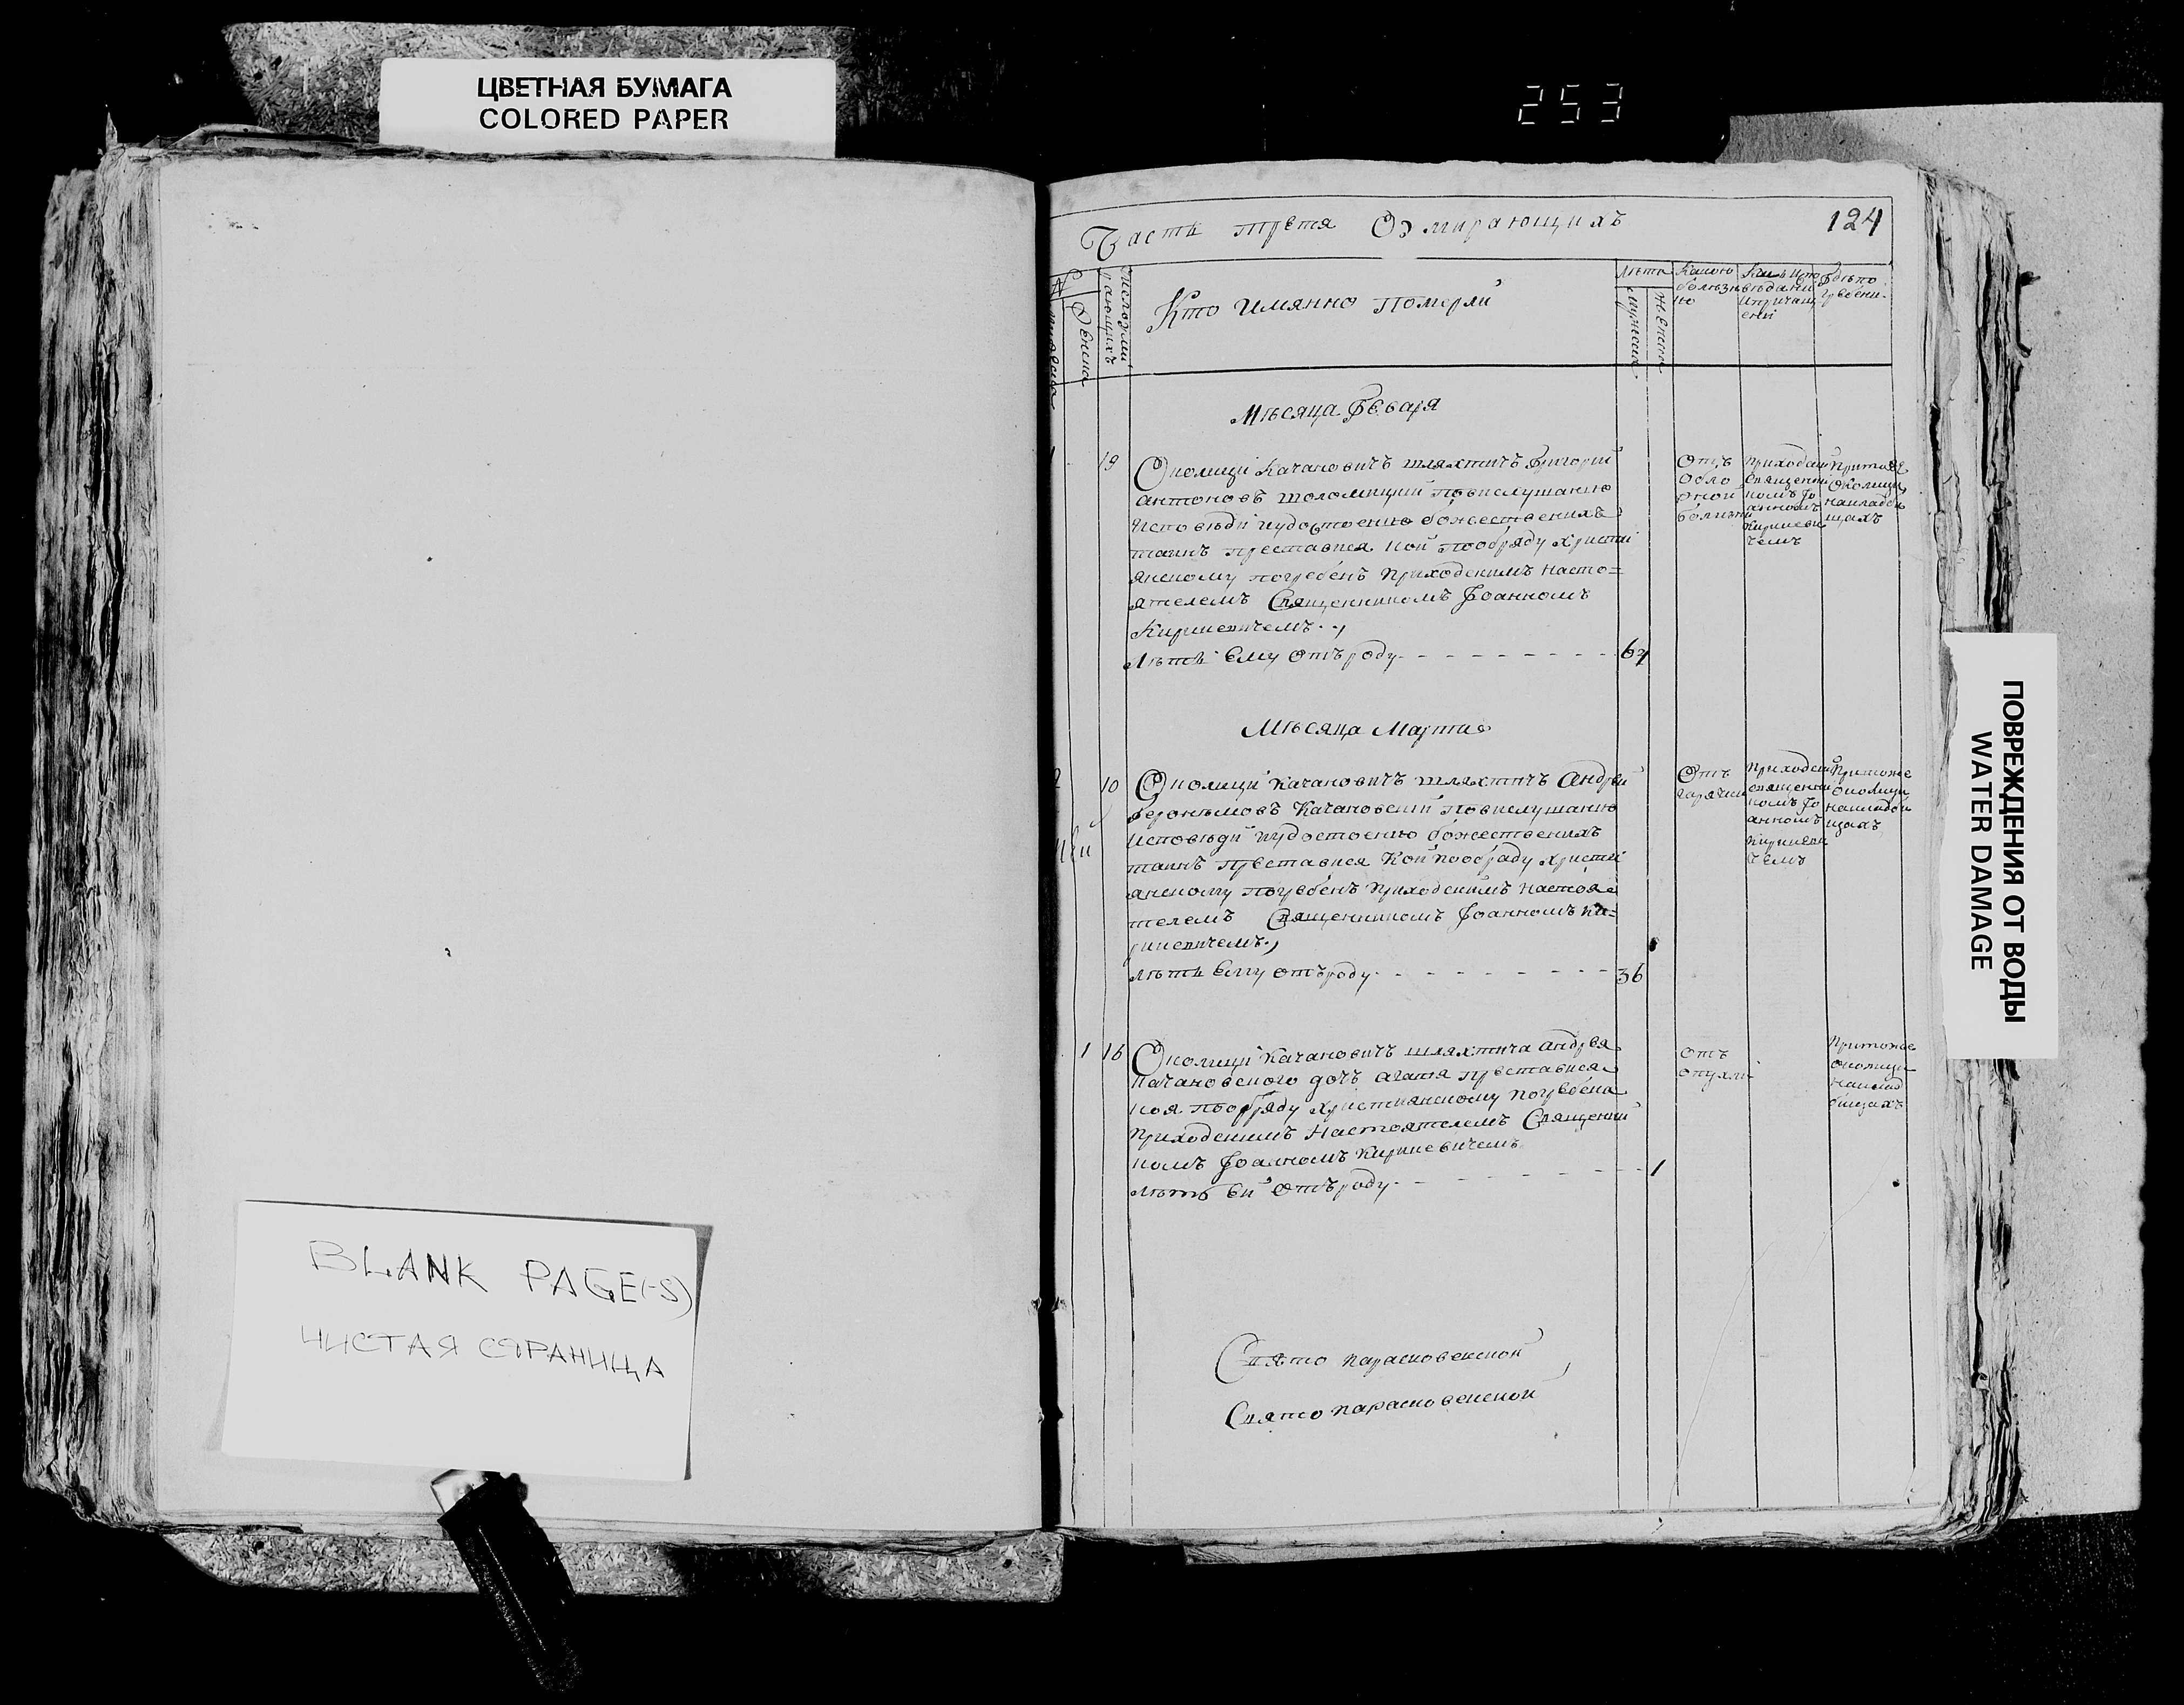 ЦВЕТНАЯ БУМАГА
COLORED PAPER
253
124
Часть третя О умирающихъ
№
Мужеска
Женска
Число умирающихъ
Кто Имянно померли
лѣта
Мужеска
Женска
Какою болѣзнію
Кѣмъ исповѣданы и причащени
Гдѣ погребени
Мѣсяца Февaря
1
19
Околици Качановичъ шляхтичъ Григорий
антоновъ шоломицкий повислушанию
Исповѣди иудостоению божественихъ
таинъ преставися кой пообряду христи
янскому погребенъ приходскимъ насто=
ятелемъ Священникомъ Іоанномъ
Кирикевичемъ
Лѣтъ Ему отъроду
64
Отъ
обло
рной
болѣзни
приходски
Священни
комъ Іо
анномъ
Кирикеви
чемъ
Притойже
околици
накладби
щахъ
Мѣсяца Марта
2
10
Околици Качановичъ шляхтичъ Андрей
Іеронимовъ Качановский повислушанию
Исповѣди иудостоению божественихъ
таинъ преставися Кой пообряду христи
янскому погребенъ приходскимъ настоя
телемъ Священникомъ Іоанномъ Ки=
рикевичемъ
лѣтъ Ему отъроду
36
Отъ
гарячки
Приходски
священни
комъ Іо
анномъ
Кирикеви
чемъ
Притойже
околици
накладби
щахъ
1
16
Околици Качановичъ шляхтича Андрея
Качановского дочъ агатя преставися
коя пообряду христианскому погребена
приходскимъ Настоятелемъ Священни
комъ Іоанномъ Кирикевичемъ
лѣтъ Ей отъроду
1
отъ
опухли
Притойже
околици
наклад
бищахъ
Свято парасковеиской
Свято парасковеиской
BLANK PAGE(-S)
ЧИСТАЯ СТРАНИЦА
ПОВРЕЖДЕНИЯ ОТ ВОДЫ
WATER DAMAGE